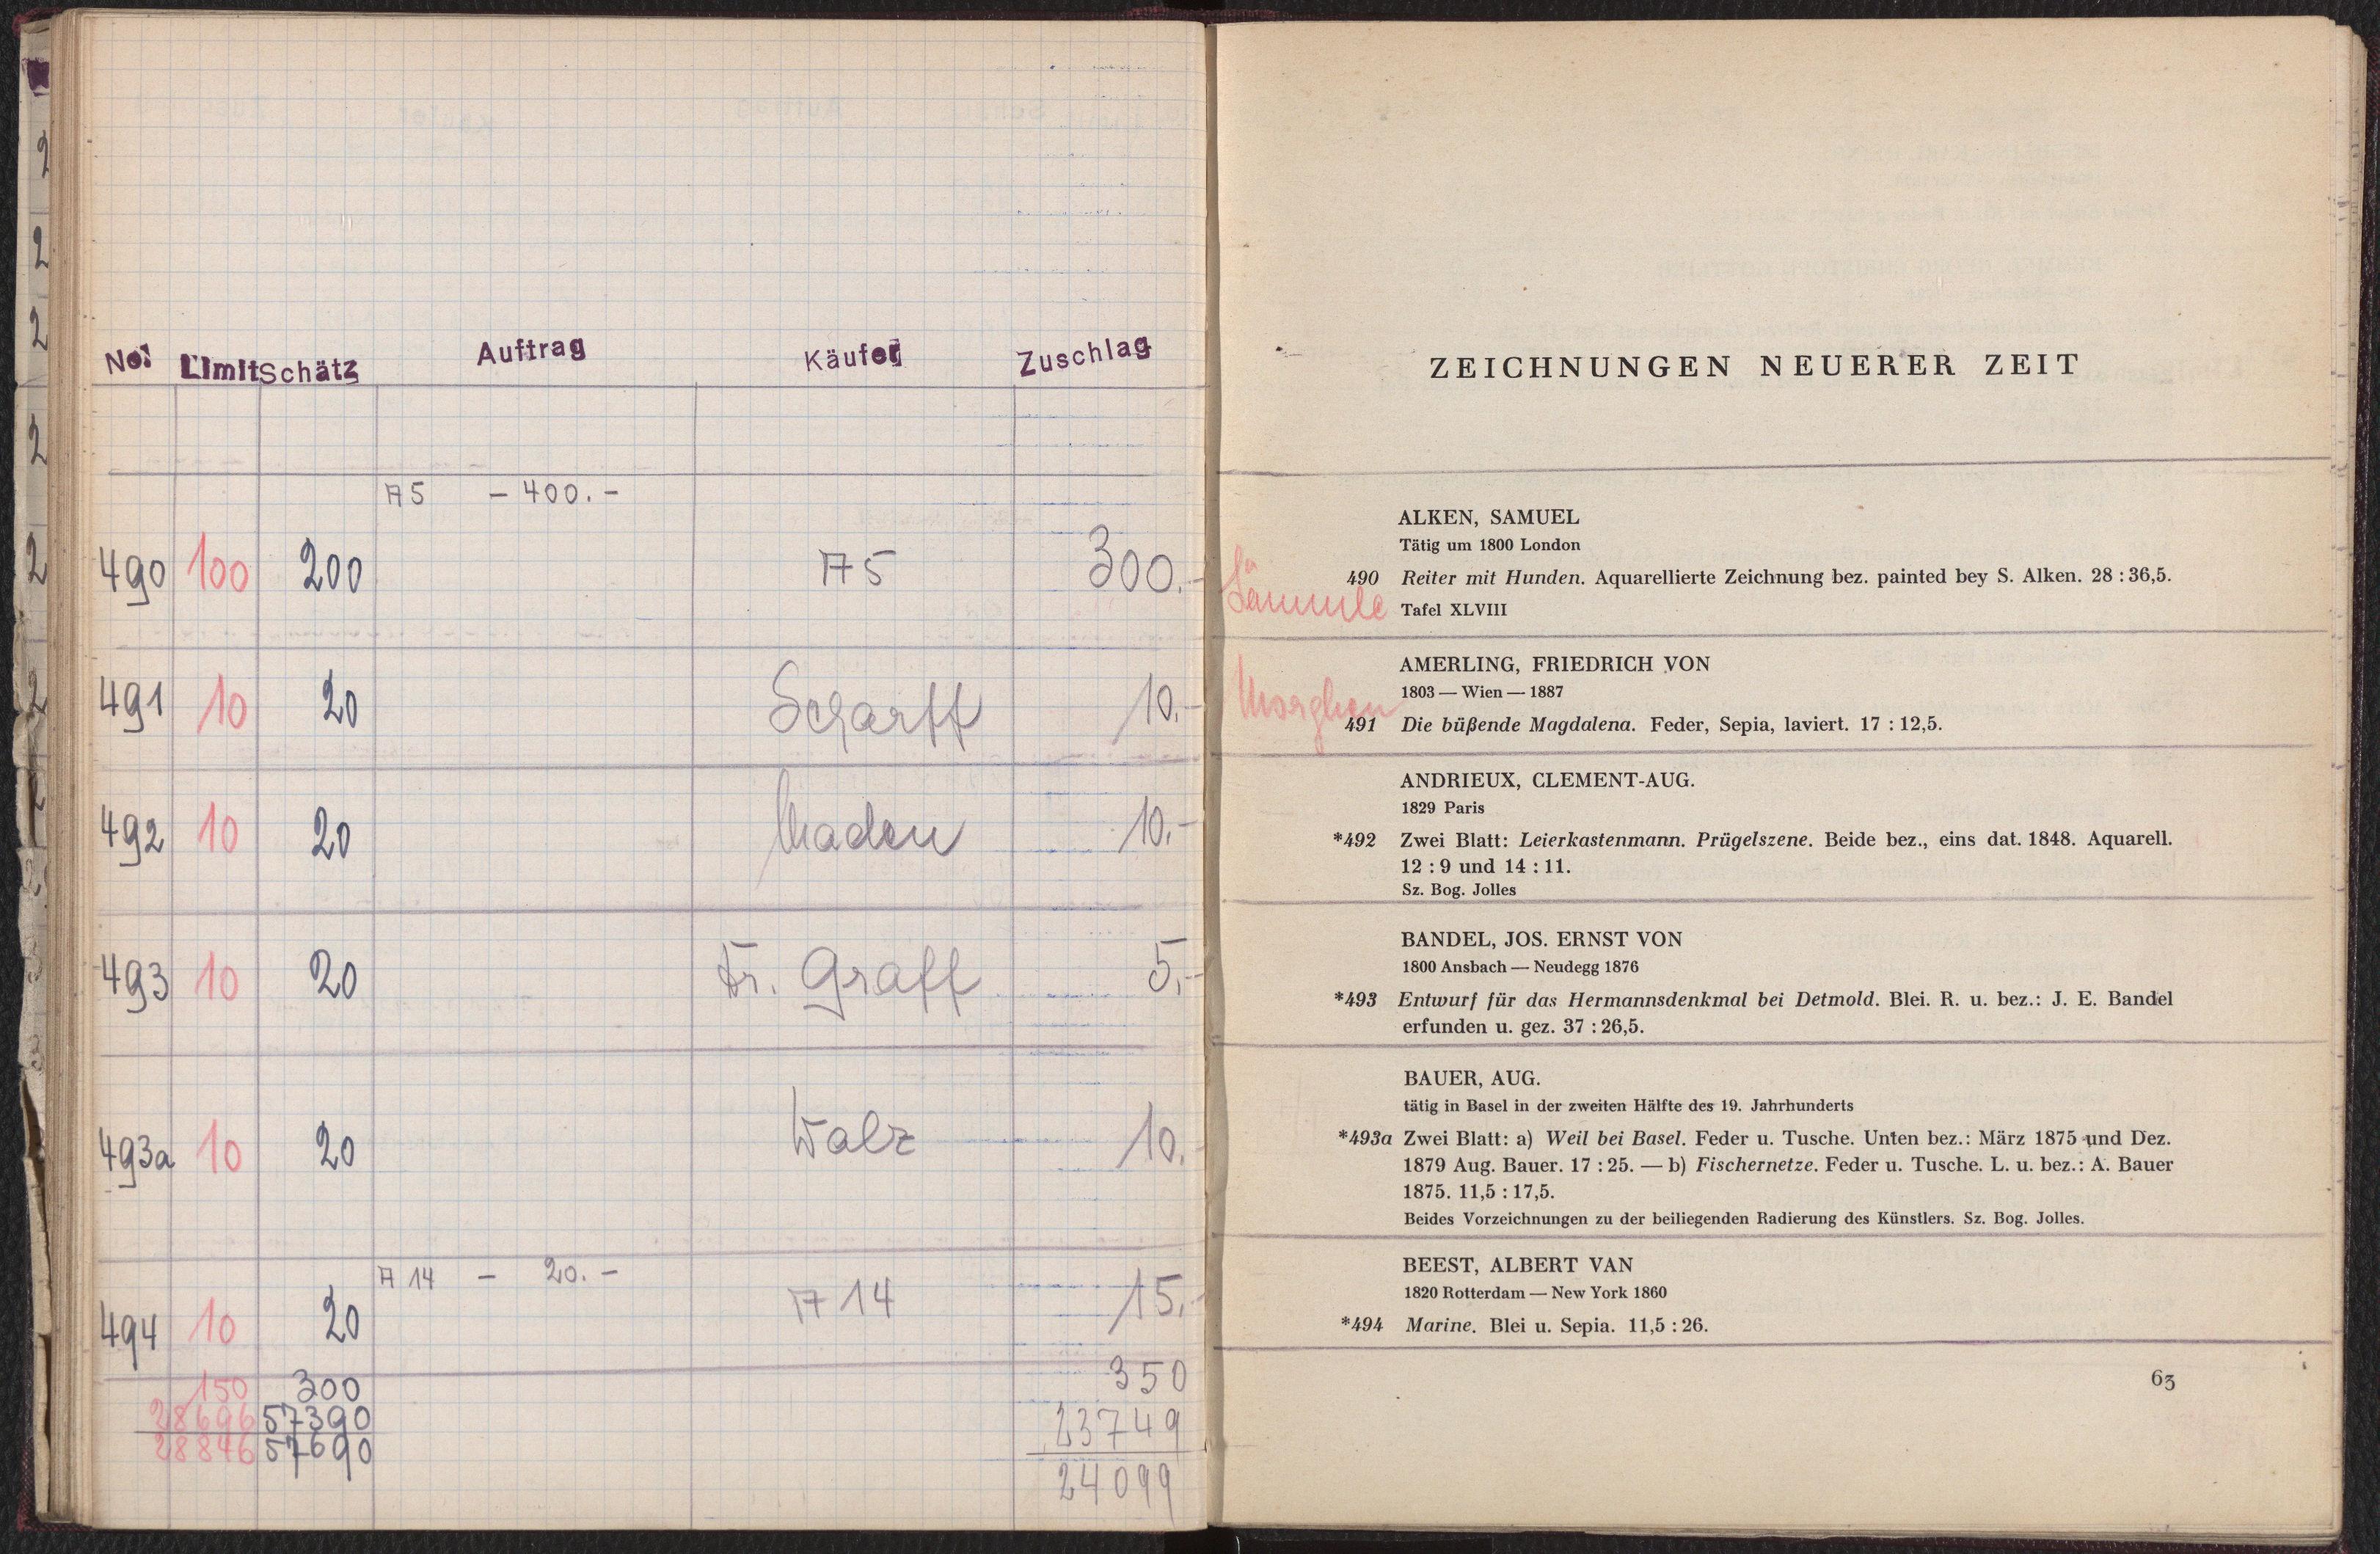 No: Limit Schätz Auftrag Käufer Zuschlag
A 5 - 400.-
490 100 200 A 5 300.-
491 10 20 Scharff 10.-
492 10 20 Maden 10.-
493 10 20 Fr. Graff 5.-
493a 10 20 Walz 10.-
A 14 - 20.-
494 10 20 A 14 15.-
150 300 350
28696 57390 23749
28846 57690 24099
ZEICHNUNGEN NEUERER ZEIT
ALKEN, SAMUEL
Tätig um 1800 London
490 Reiter mit Hunden. Aquarellierte Zeichnung bez. painted bey S. Alken. 28 : 36,5.
Lämmle Tafel XLVIII
AMERLING, FRIEDRICH VON
1803 — Wien — 1887
Morghen
491 Die büßende Magdalena. Feder, Sepia, laviert. 17 : 12,5.
ANDRIEUX, CLEMENT-AUG.
1829 Paris
*492 Zwei Blatt: Leierkastenmann. Prügelszene. Beide bez., eins dat. 1848. Aquarell.
12 : 9 und 14 : 11.
Sz. Bog. Jolles
BANDEL, JOS. ERNST VON
1800 Ansbach — Neudegg 1876
*493 Entwurf für das Hermannsdenkmal bei Detmold. Blei. R. u. bez.: J. E. Bandel
erfunden u. gez. 37 : 26,5.
BAUER, AUG.
tätig in Basel in der zweiten Hälfte des 19. Jahrhunderts
*493a Zwei Blatt: a) Weil bei Basel. Feder u. Tusche. Unten bez.: März 1875 und Dez.
1879 Aug. Bauer. 17 : 25. — b) Fischernetze. Feder u. Tusche. L. u. bez.: A. Bauer
1875. 11,5 : 17,5.
Beides Vorzeichnungen zu der beiliegenden Radierung des Künstlers. Sz. Bog. Jolles.
BEEST, ALBERT VAN
1820 Rotterdam — New York 1860
*494 Marine. Blei u. Sepia. 11,5 : 26.
63